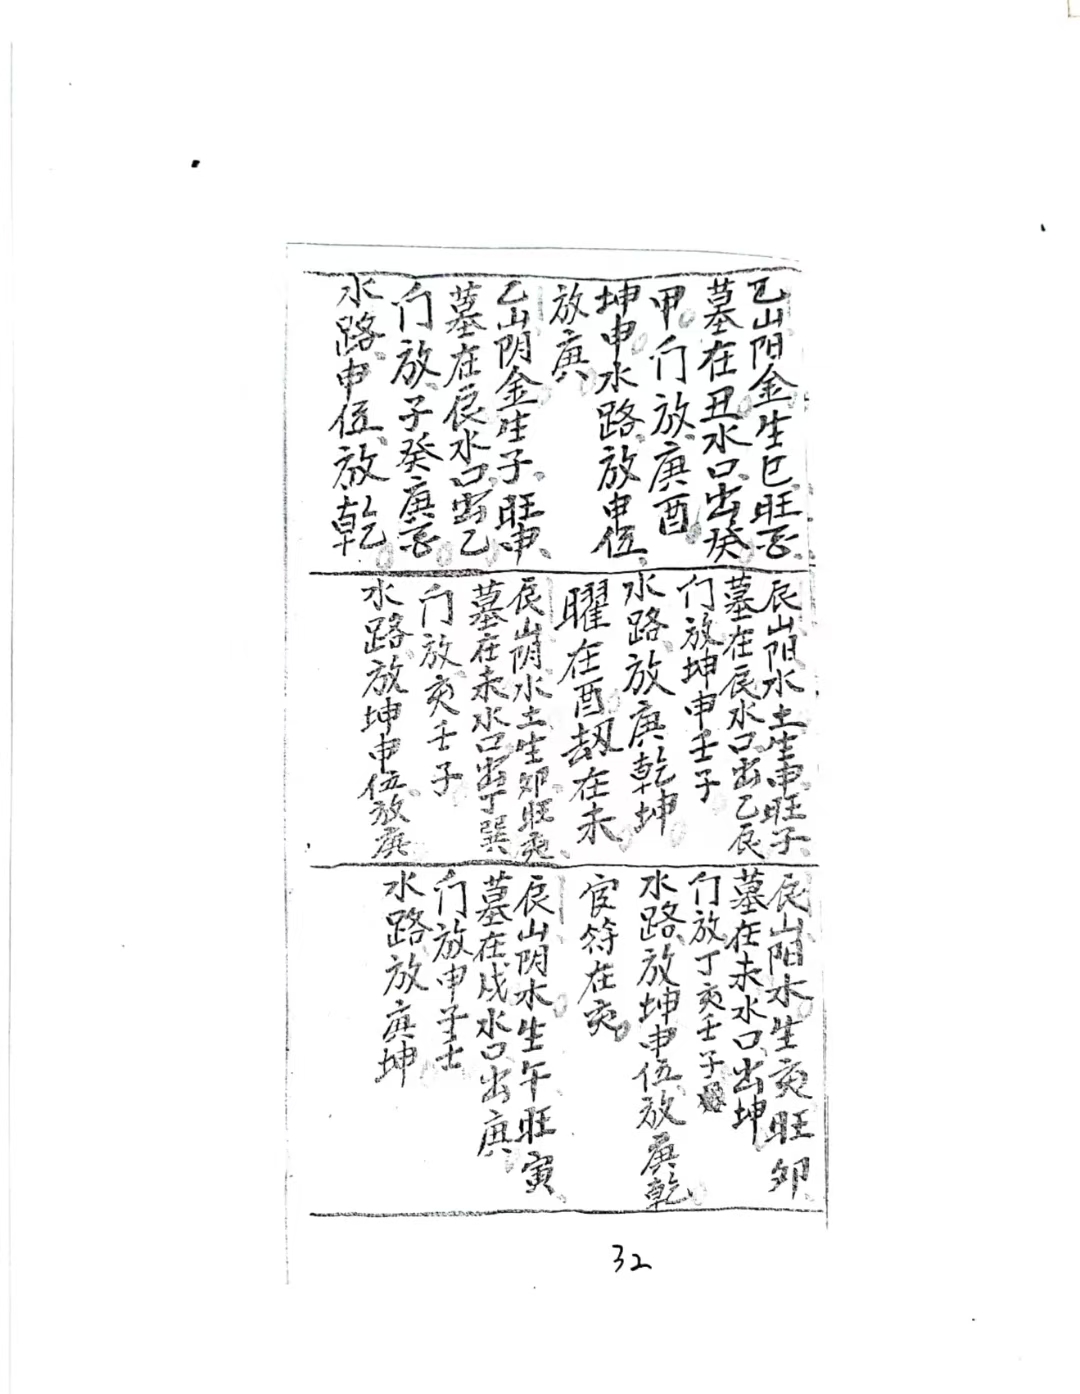 乙山阳金生巳旺酉
墓在丑水口出癸
甲门放庚酉
坤申水路放申位
放庚
乙山阴金生子旺申
墓在辰水口出乙
门放子癸庚酉
水路申位放乾
辰山阳水土生申旺子
墓在辰水口出乙辰
门放坤申壬子
水路放庚乾坤
曜在酉劫在未
辰山阴水土生卯旺亥
墓在未水口出丁巽
门放亥壬子
水路放坤申位放庚
辰山阳木生亥旺卯
墓在未水口出坤
门放丁亥壬子
水路放坤申位放庚乾
官符在亥
辰山阴木生午旺寅
墓在戌水口出庚
门放申子壬
水路放庚坤
32